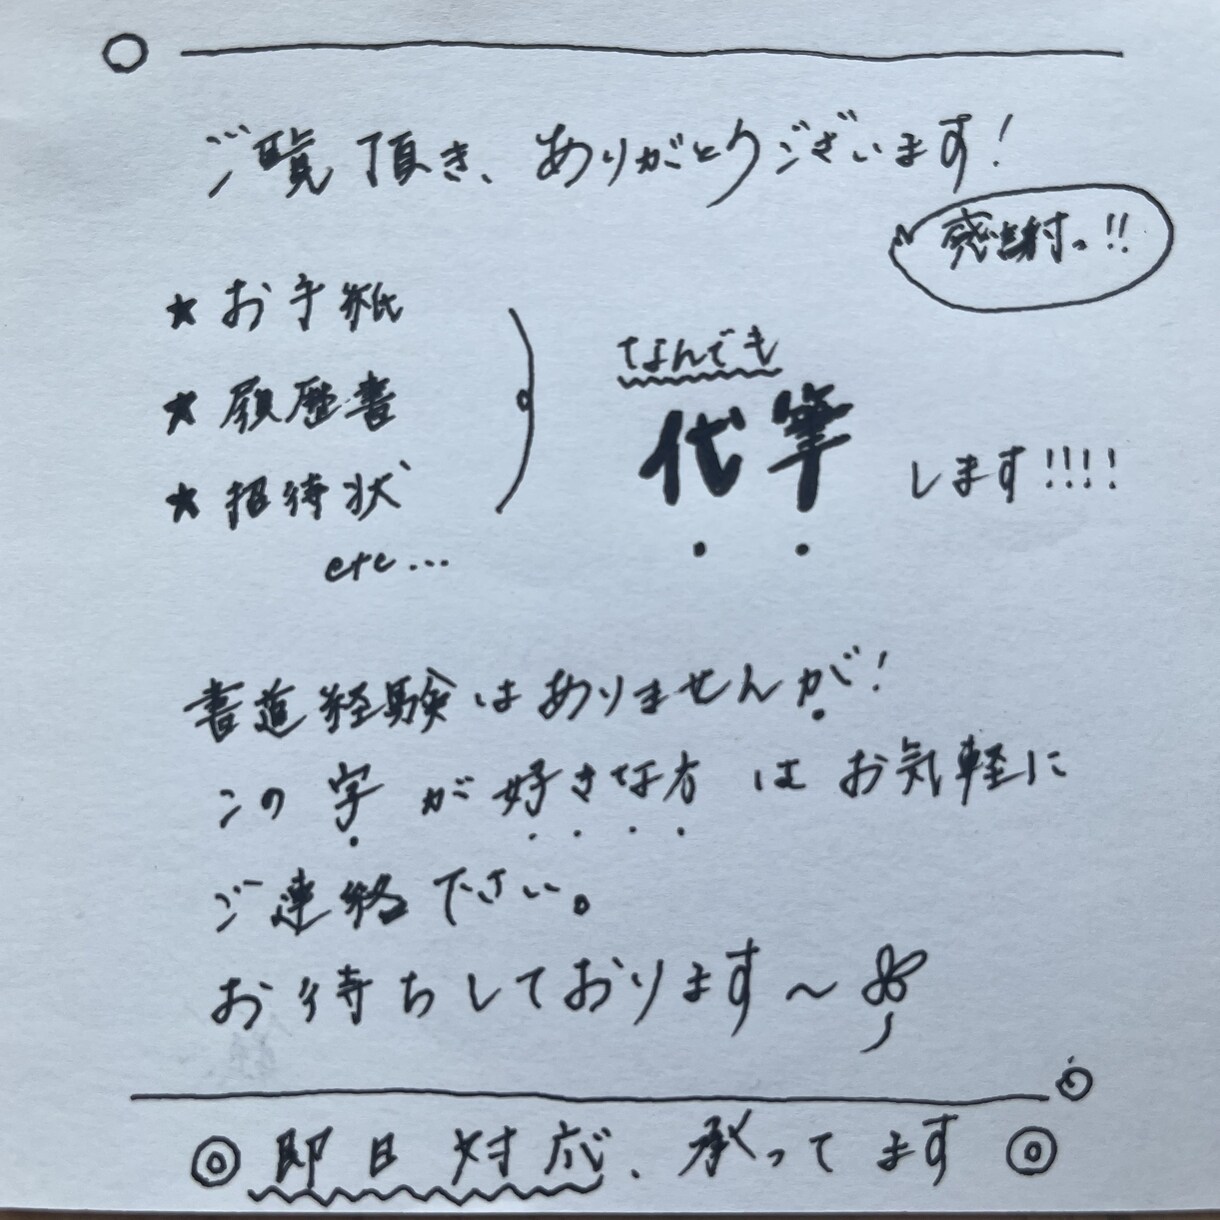 ご覧頂き、ありがとうございます!
感謝っ!!
★お手紙
★履歴書
★招待状
etc...
なんでも
代筆
します!!!!
書道経験はありませんが!
この字が好きな方はお気軽に
ご連絡下さい。
お待ちしております〜
◎即日対応、承ってます◎